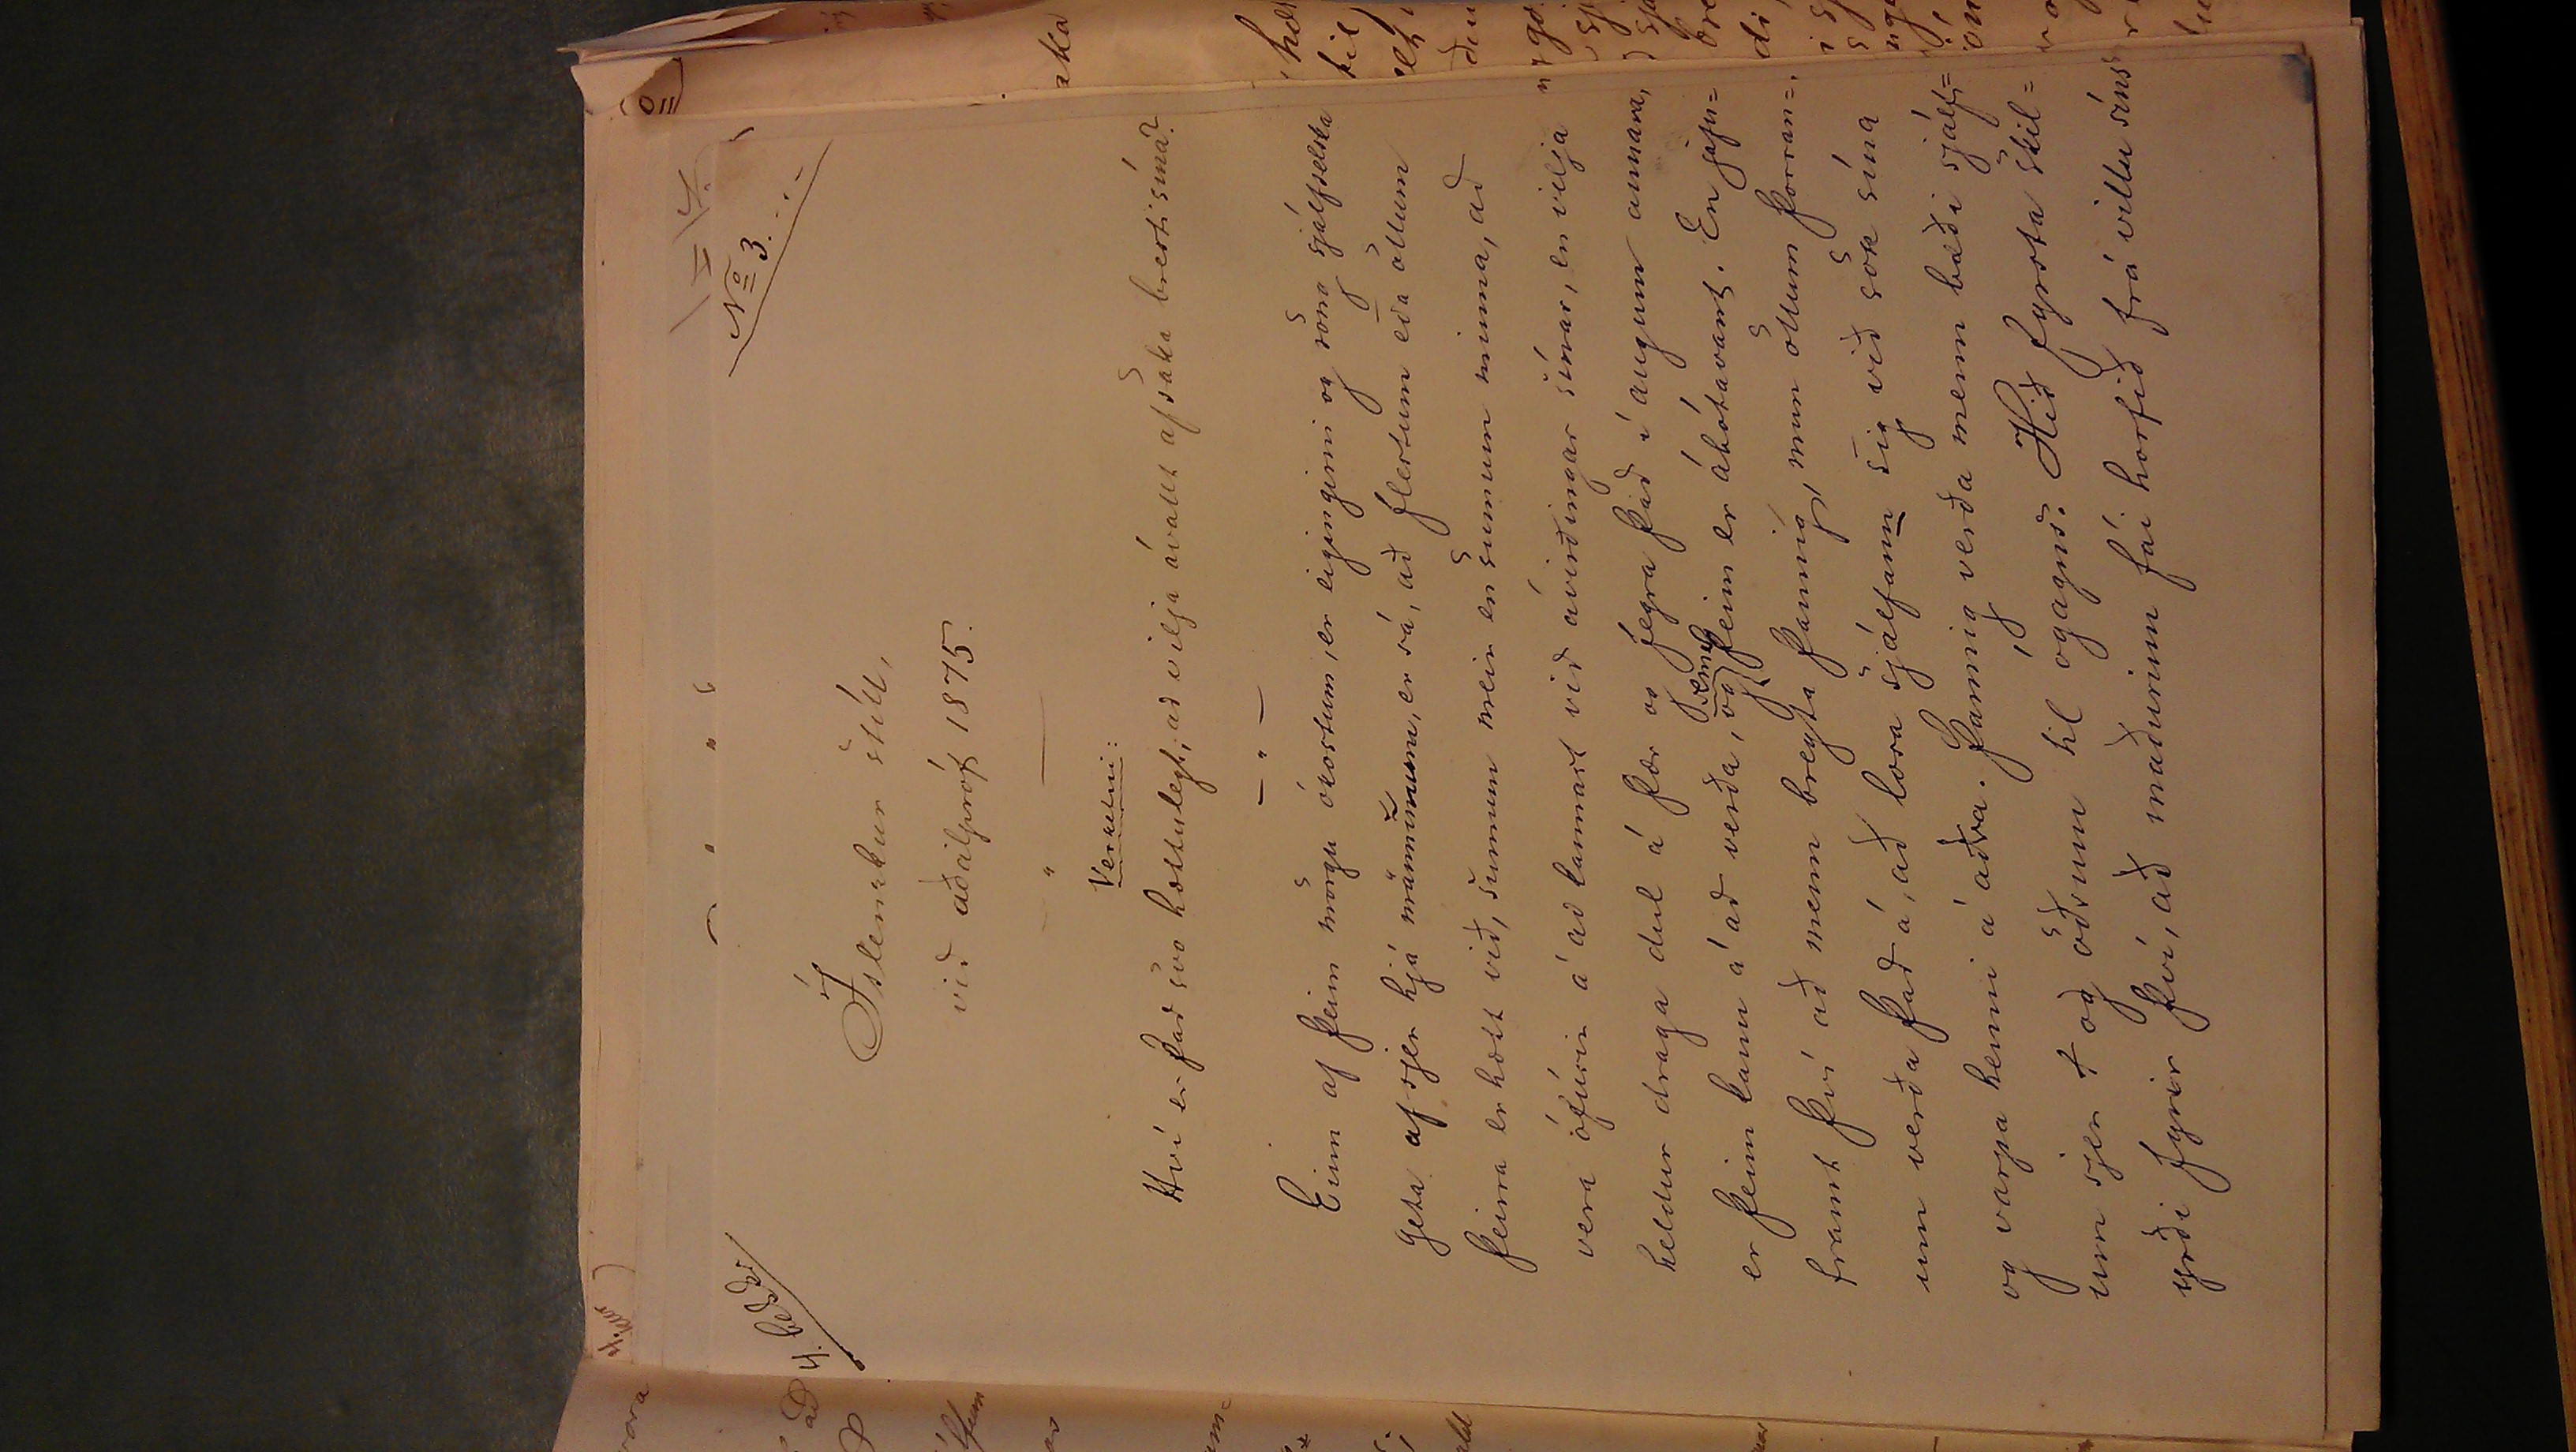 No 3.
4. bekkr
Íslenzkur stíll,
við aðalpróf 1875.
Verkefni:
Hví er það svo hættulegt, að vilja ávallt afsaka bresti sína?
Einn af þeim mörgu ókostum, er eigingirni og röng sjálfselska
geta af sjer hjá mönnunum, er sá, að flestum eða öllum
þeirra er hætt við, sumum meir en sumum minna, að
vera ófúsir á að kannast við ávirðingar sínar, en vilja
heldur draga dul á þær og fegra það í augum annara,
er þeim kann á að verða, og sem þeim er ábótavant. En jafn=
framt því að menn breyta þannig, mun öllum þorran=
um verða það á, að losa sjálfann sig við sök sína
og varpa henni á aðra. Þannig verða menn bæði sjálf=
um sjer + og öðrum til ógagns. Hið fyrsta skil=
yrði fyrir því, að maðurinn fái horfið frá villu síns